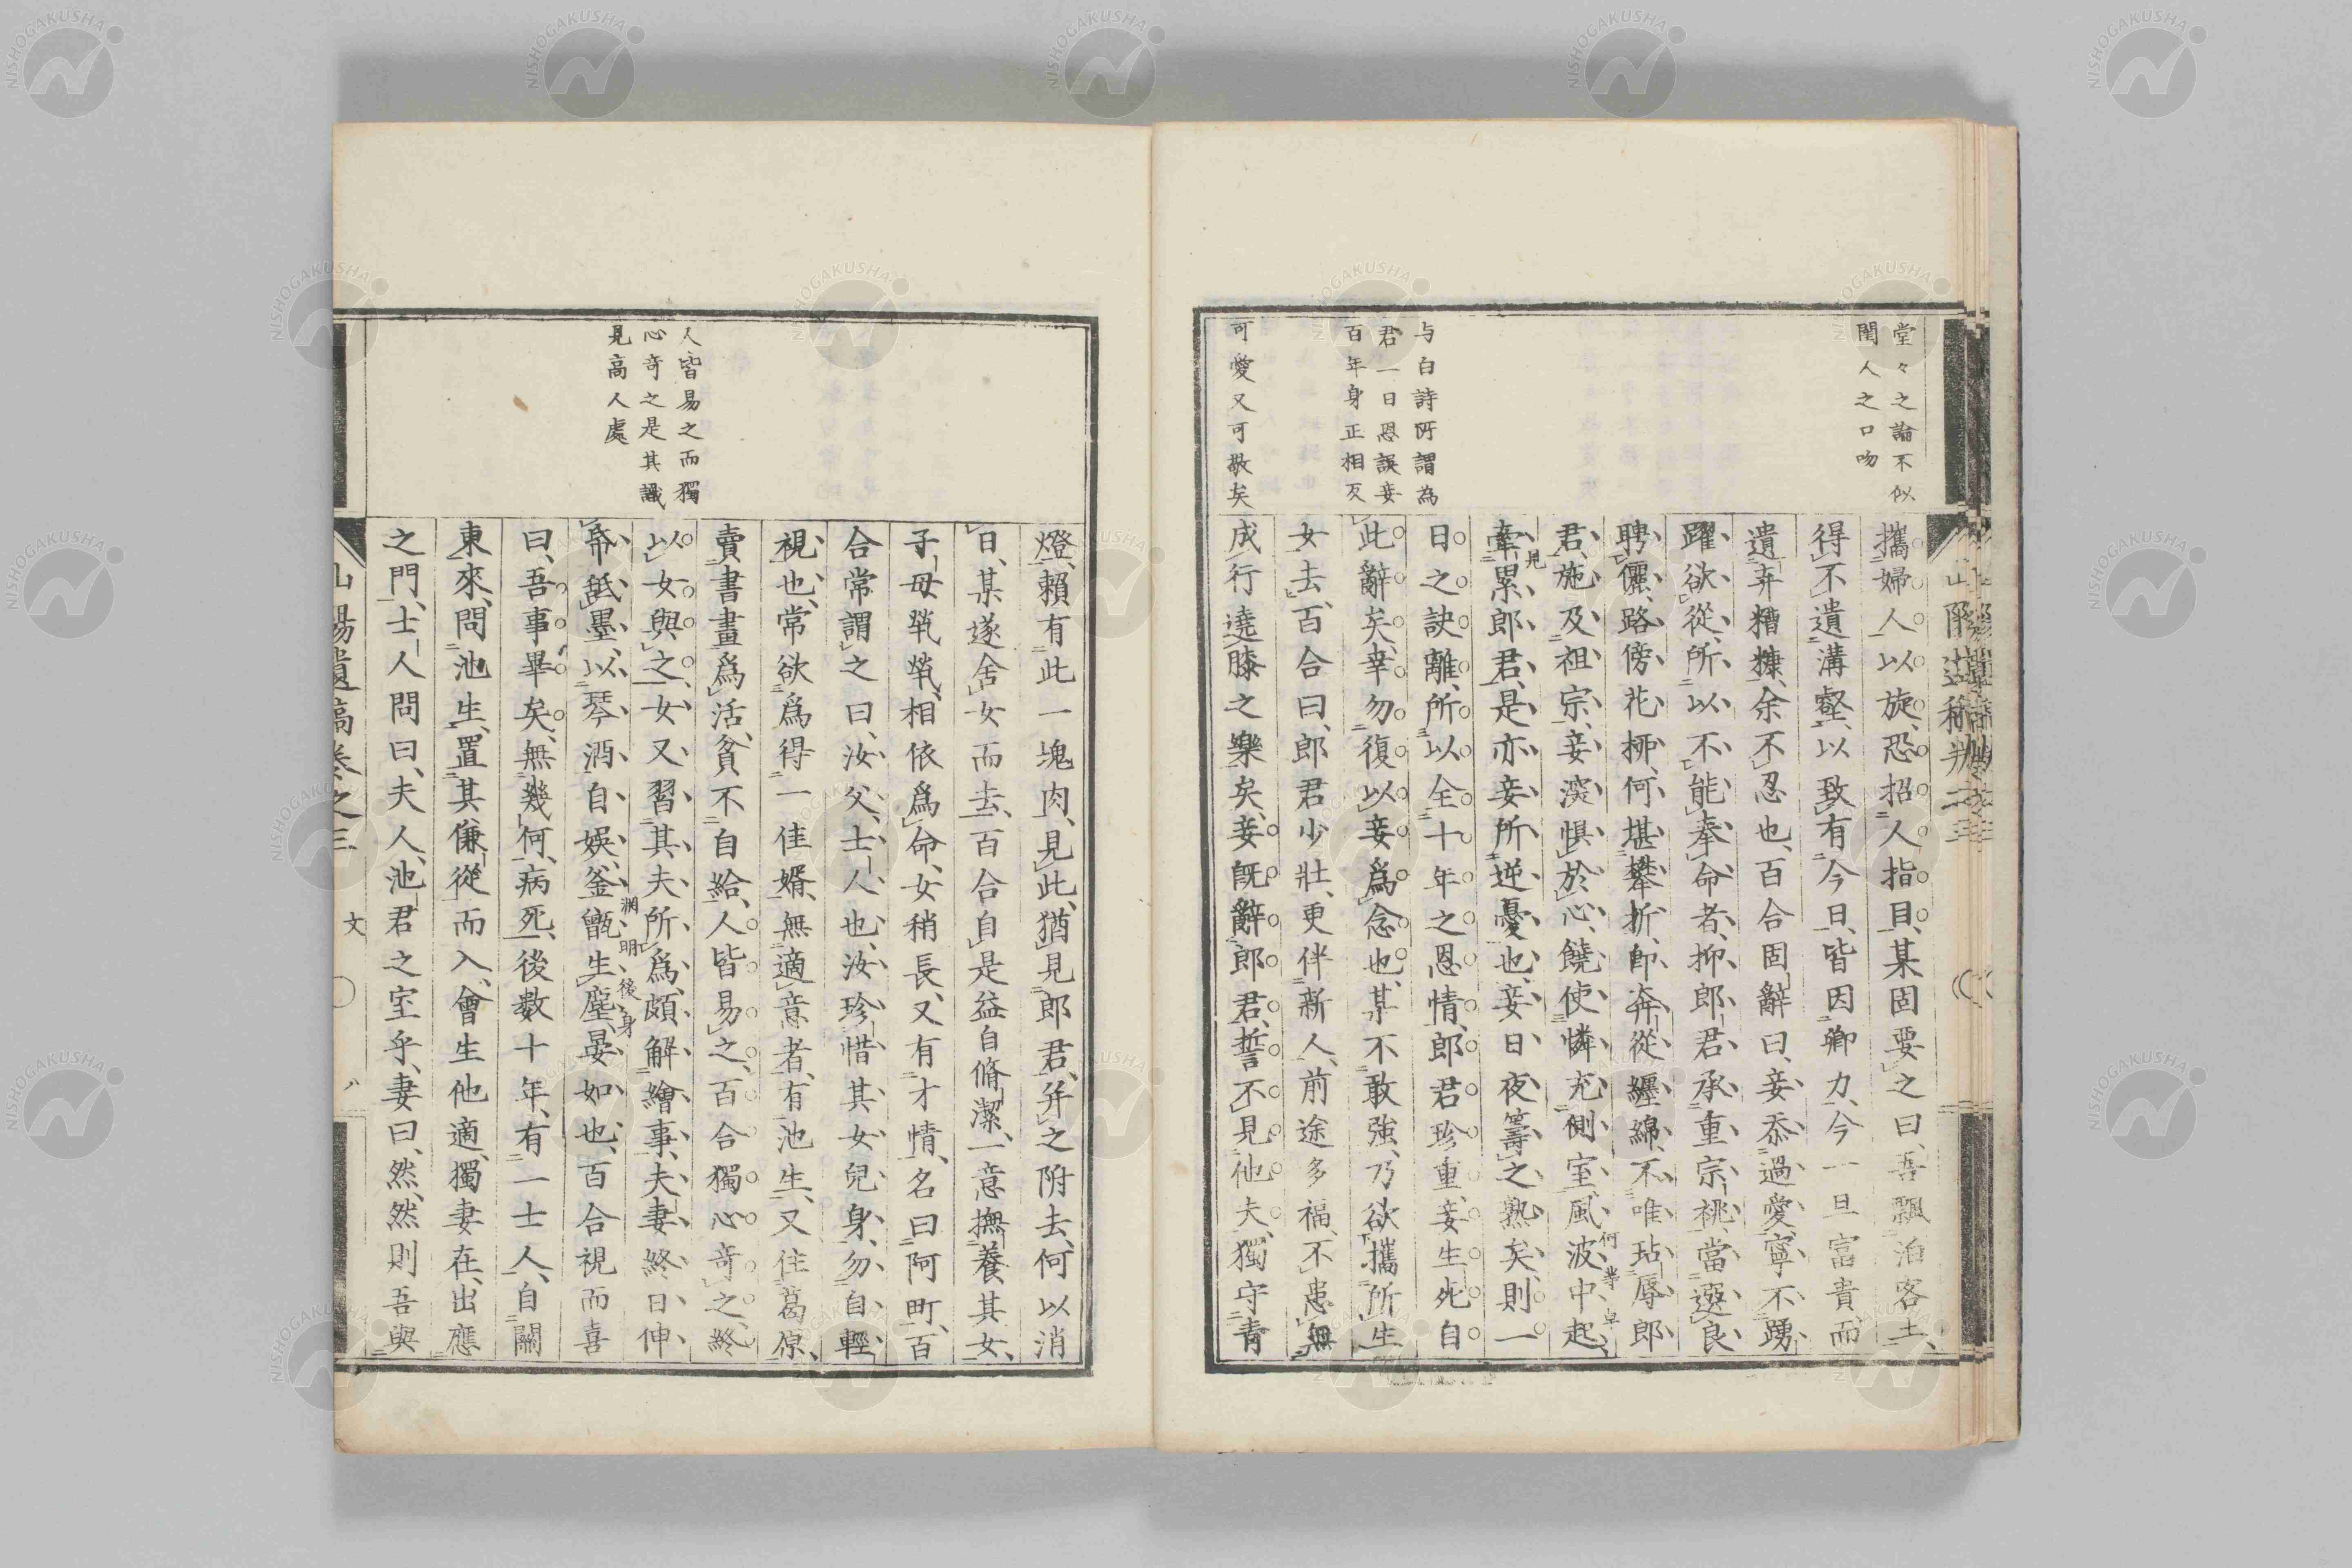 堂々之論不似
閨人之口吻
与白詩所謂為
君一日恩誤妾
百年身正相反
可愛又可敬矣
攜婦人以旋恐招人指目某固要之曰吾飄泊客土
得不遺溝壑以致有今日皆因卿力今一旦富貴而
遺弃糟糠余不忍也百合固辭曰妾忝過愛寧不踴
躍欲從所以不能奉命者抑郎君承重宗祧當選良
聘儷路傍花柳何堪攀折卽奔從纏綿不唯玷辱郎
君施及祖宗妾深懼於心饒使憐充側室風波中起
何等卓見
牽累郎君是亦妾所逆憂也妾日夜籌之熟矣則一
日之訣離所以全十年之恩情郎君珍重妾生死自
此辭矣幸勿復以妾爲念也某不敢強乃欲攜所生
女去百合曰郎君少壯更伴新人前途多福不患無
成行遶膝之樂矣妾旣辭郎君誓不見他夫獨守青
人皆易之而獨
心奇之是其識
見高人處
燈賴有此一塊肉見此猶見郎君弁之附去何以消
日某遂舍女而去百合自是益自脩潔一意撫養其女
子母煢煢相依爲命女稍長又有才情名曰阿町百
合常謂之曰汝父士人也汝珍惜其女兒身勿自輕
視也常欲爲得一佳婿無適意者有池生又住葛原
賣書畫爲活貧不自給人皆易之百合獨心奇之終
以女與之女又習其夫所爲頗解繪事夫妻終日伸
淵明後身
帋舐墨以琴酒自娛釜甑生塵晏如也百合視而喜
曰吾事畢矣無幾何病死後數十年有一士人自關
東來問池生置其傔從而入會生他適獨妻在出應
之門士人問曰夫人池君之室乎妻曰然然則吾與
山陽遺稿卷之三 文 八
NISHOGAKUSHA